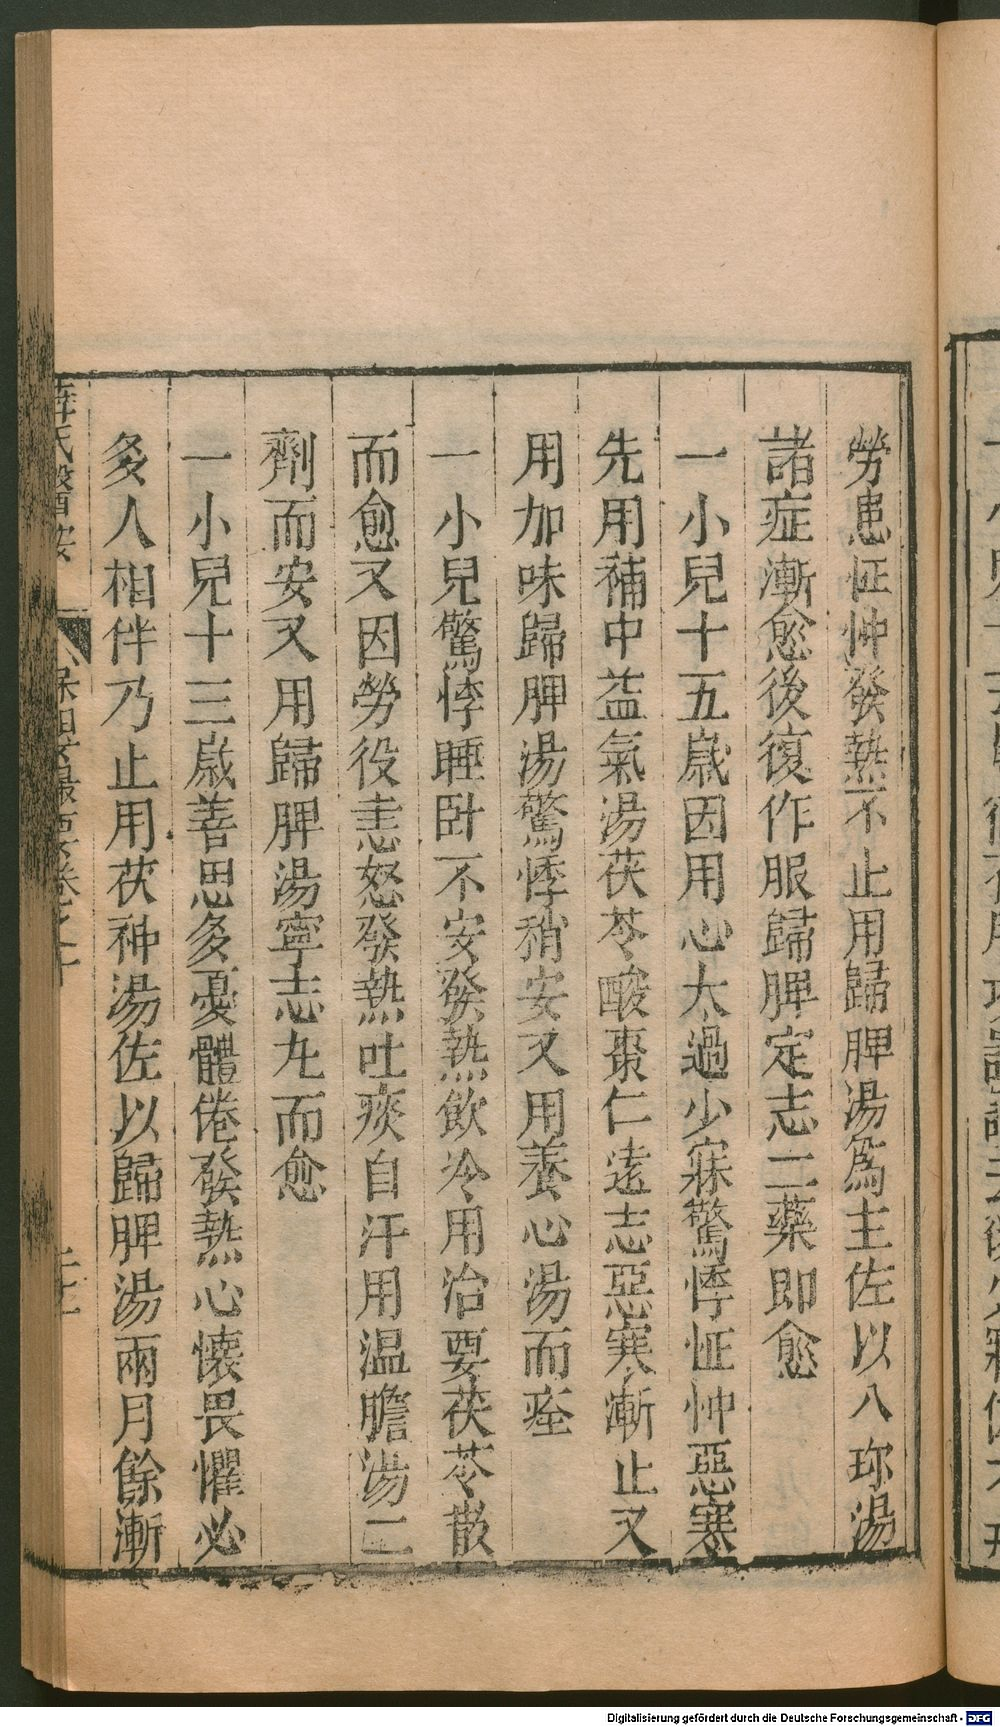 勞患怔忡發熱不止用歸脾湯為主佐以八珎湯
諸症漸愈後復作服歸脾定志二藥即愈
一小兒十五歲因用心太過少寐驚悸怔忡惡寒
先用補中益氣湯茯苓酸棗仁遠志惡寒漸止又
用加味歸脾湯驚悸稍安又用養心湯而痊
一小兒驚悸睡卧不安發熱飲冷用治要茯苓散
而愈又因勞役恚怒發熱吐痰自汗用温膽湯二
劑而安又用歸脾湯寧志丸而愈
一小兒十三歲善思多憂體倦發熱心懐畏懼必
多人相伴乃止用茯神湯佐以歸脾湯兩月餘漸
薛氏醫案
保嬰撮要卷之十
Digitalisierung gefördert durch die Deutsche Forschungsgemeinschaft - DFG